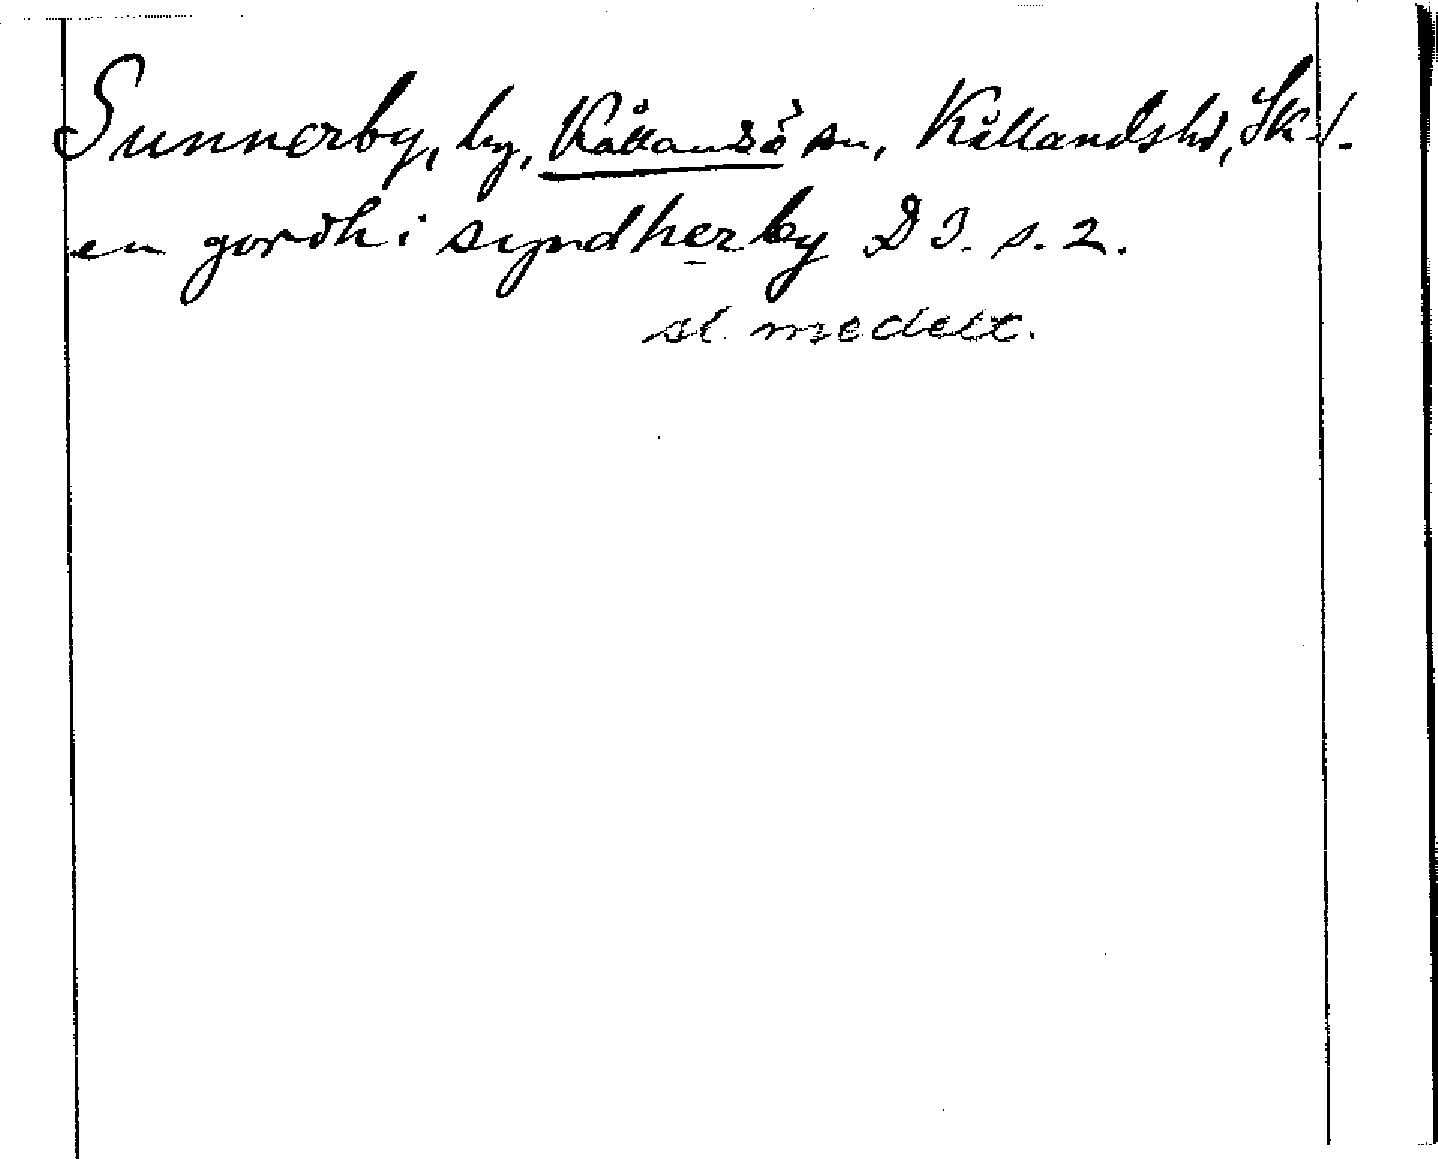 Sunnerby, by, Kållandsö sn, Kållandshd, Sk. l.
en gordh i syndherby D 3. s. 2.
sl. medelt.